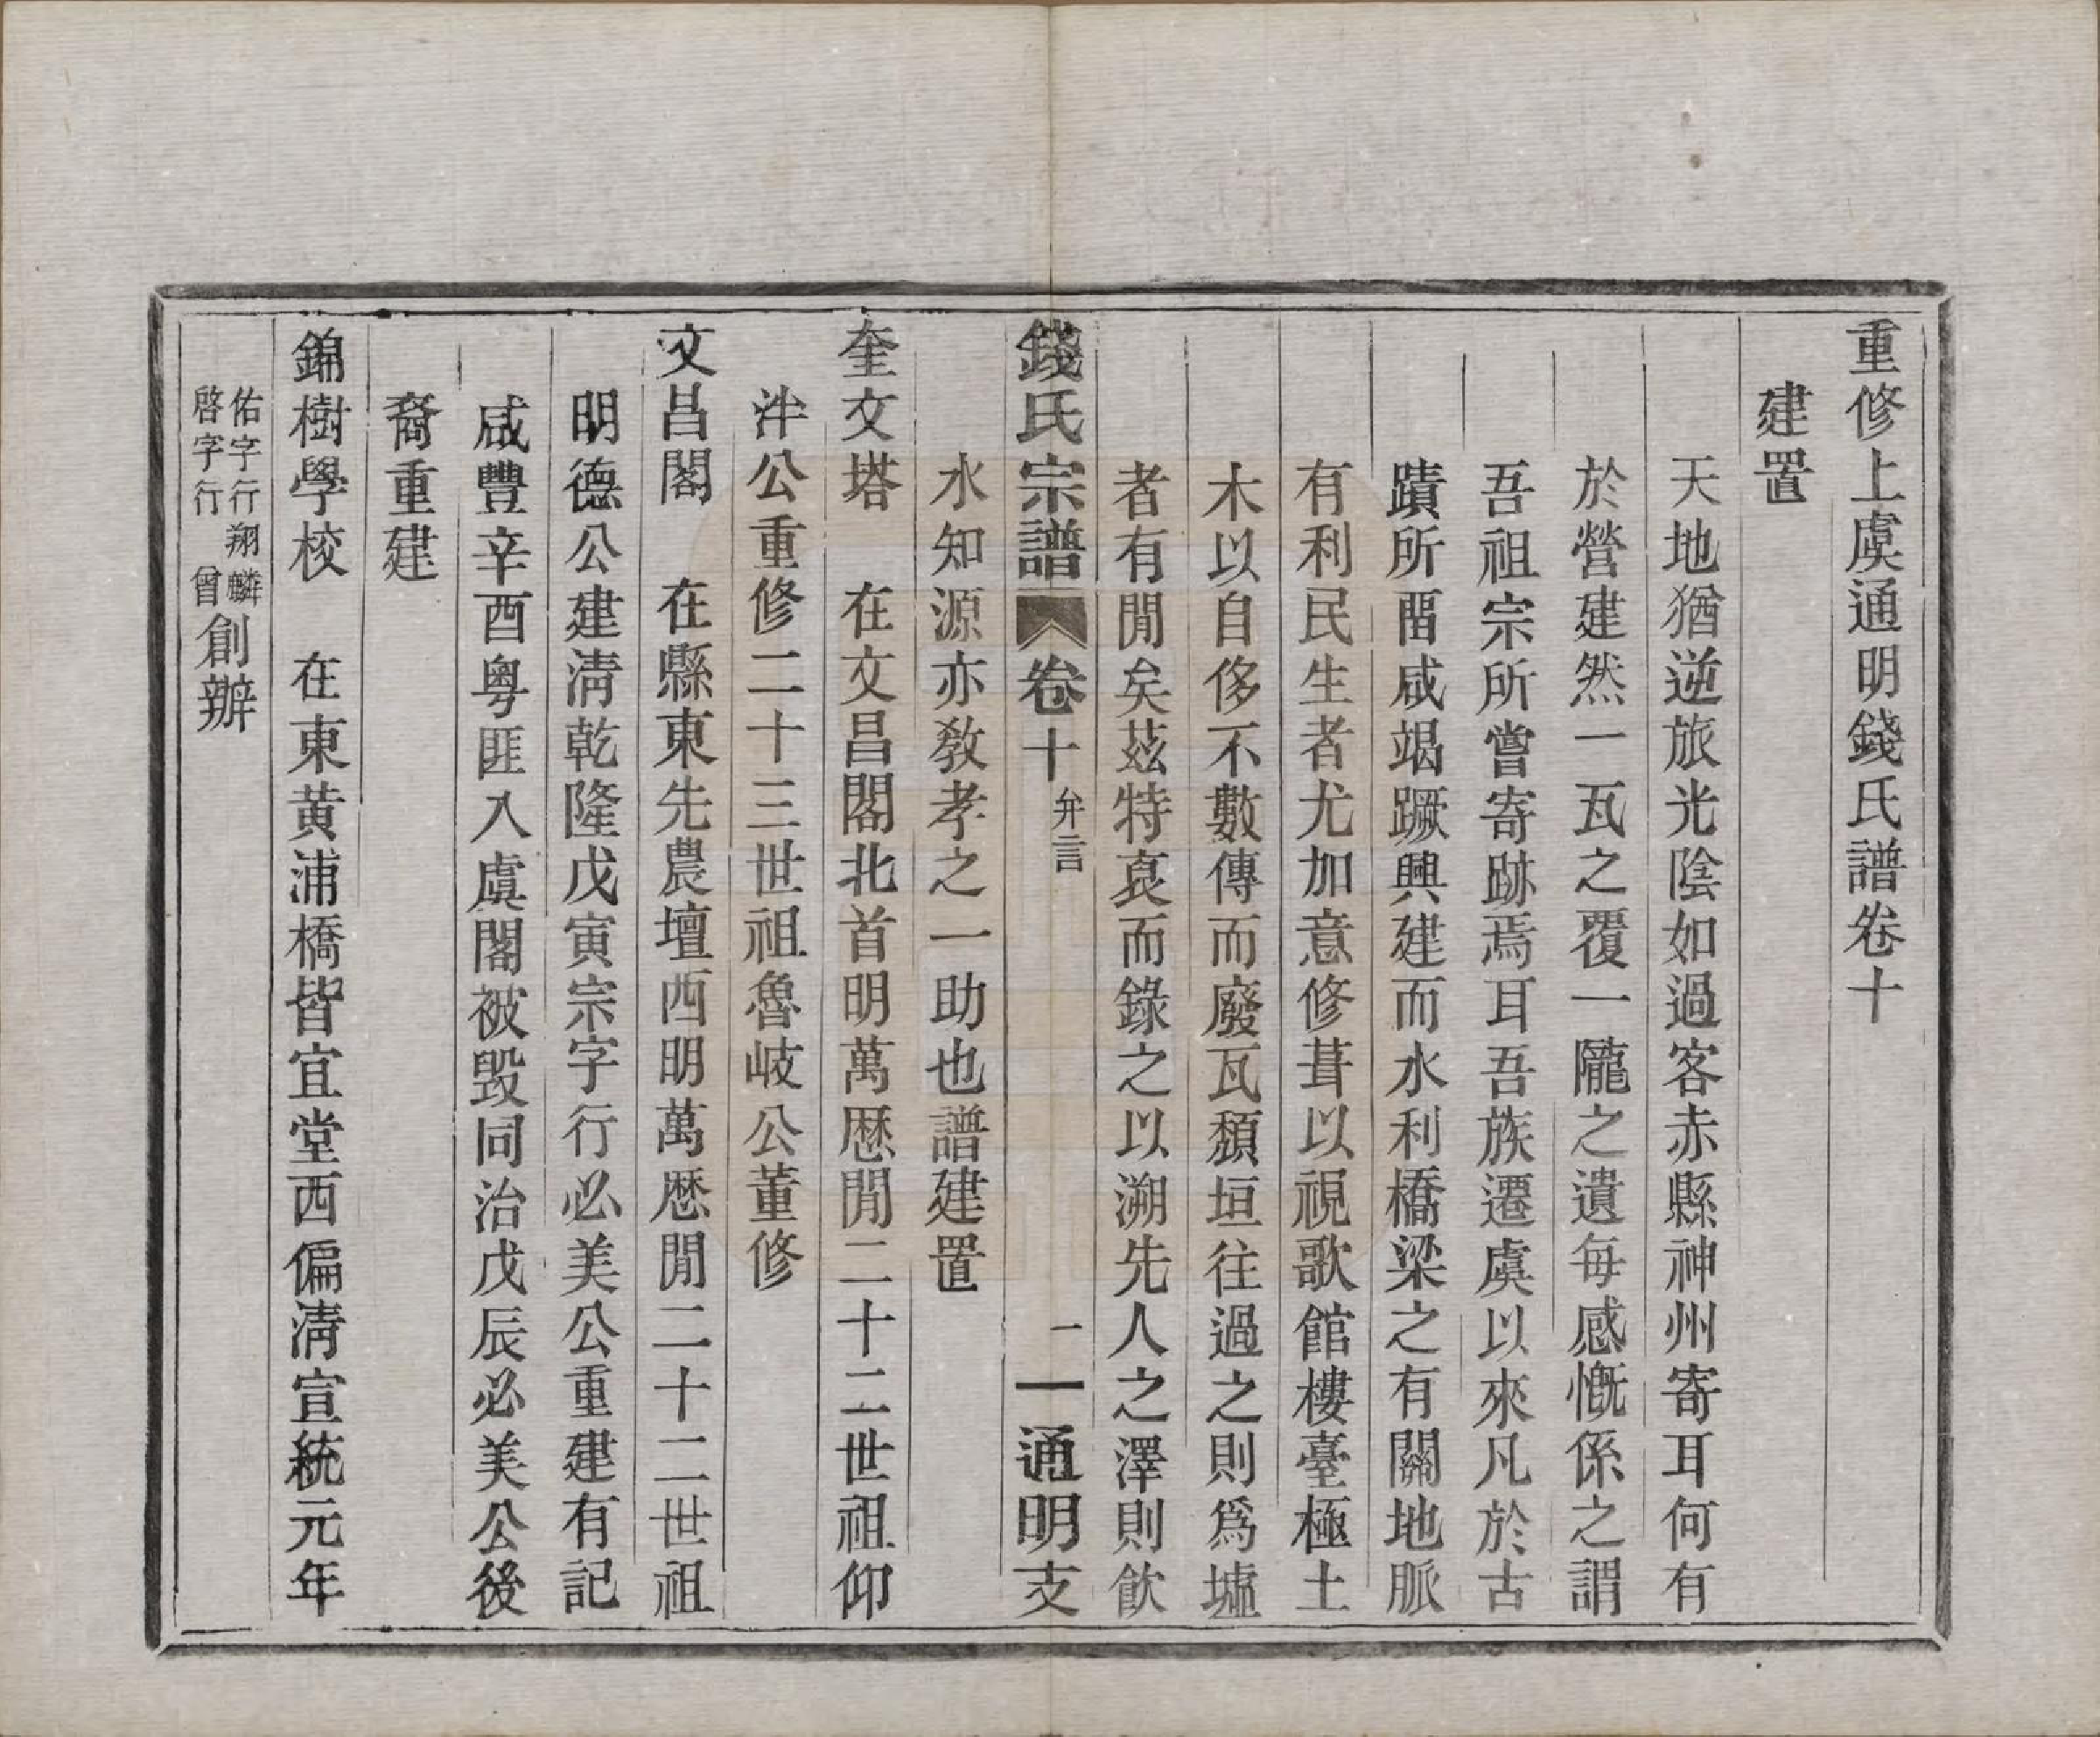 重修上虞通明錢氏譜卷十
建置
天地猶逆旅光陰如過客赤縣神州寄耳何有
於營建然一瓦之覆一隴之遺每感慨係之謂
吾祖宗所嘗寄跡焉耳吾族遷虞以來凡於古
蹟所畱咸竭蹶興建而水利橋梁之有關地脈
有利民生者尤加意修葺以視歌館樓臺極土
木以自侈不數傳而廢瓦頹垣往過之則爲墟
者有閒矣玆特裒而錄之以溯先人之澤則飮
錢氏宗譜 卷十 弁言 一 通明支
水知源亦敎孝之一助也譜建置
奎文塔 在文昌閣北首明萬厯閒二十二世祖仰
泮公重修二十三世祖魯岐公董修
文昌閣 在縣東先農壇西明萬厯閒二十二世祖
明德公建淸乾隆戊寅宗字行必美公重建有記
咸豐辛酉粤匪入虞閣被毀同治戊辰必美公後
裔重建
錦樹學校 在東黃浦橋皆宜堂西偏淸宣統元年
佑字行翔麟
啓字行 曾創辦